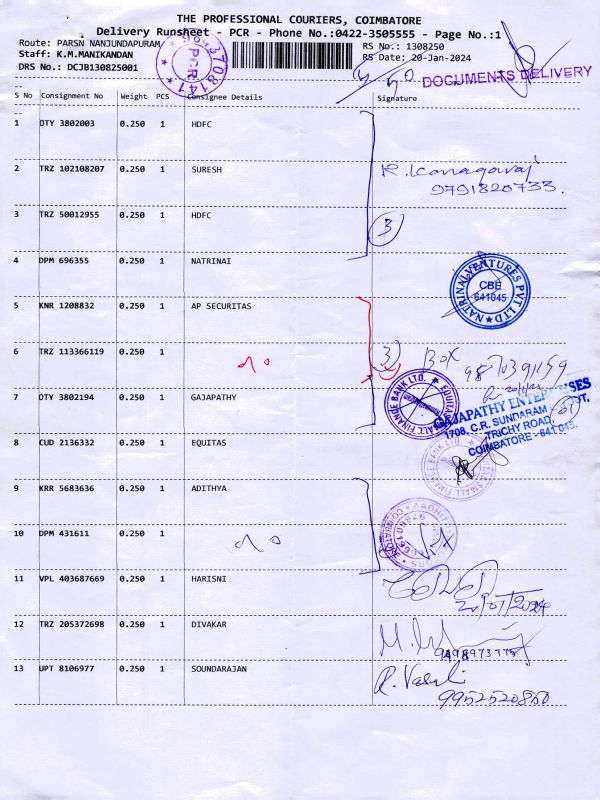 THE PROFESSIONAL COURIERS, COIMBATORE
Delivery Runsheet - PCR - Phone No.:0422-3505555 - Page No.:1
Route: PARSN NANJUNDAPURAM
RS No.: 1308250
Staff: K.M.MANIKANDAN
RS Date: 20-Jan-2024
DRS No.: DCJB130825001
3708141
PCR
DOCUMENTS DELIVERY
S No Consignment No Weight PCS Consignee Details Signature
1 DTY 3802003 0.250 1 HDFC
2 TRZ 102108207 0.250 1 SURESH
K. Kanagaraj
9791820733.
3 TRZ 50012955 0.250 1 HDFC
3
4 DPM 696355 0.250 1 NATRINAI
NATRINAI VENTURES PVT LTD
CBE
641045
5 KNR 1208832 0.250 1 AP SECURITAS
6 TRZ 113366119 0.250 1
3 Box
7 DTY 3802194 0.250 1 GAJAPATHY
EQUITAS SMALL FINANCE BANK LTD.
GAJAPATHY ENTERPRISES
1708, C.R. SUNDARAM
TRICHY ROAD,
COIMBATORE - 641 045.
8 CUD 2136332 0.250 1 EQUITAS
SMALL FINANCE BANK LTD.
9 KRR 5683636 0.250 1 ADITHYA
10 DPM 431611 0.250 1
COIMBATORE
11 VPL 403687669 0.250 1 HARISNI
20/01/2024
12 TRZ 205372698 0.250 1 DIVAKAR
13 UPT 8106977 0.250 1 SOUNDARAJAN
9952520850